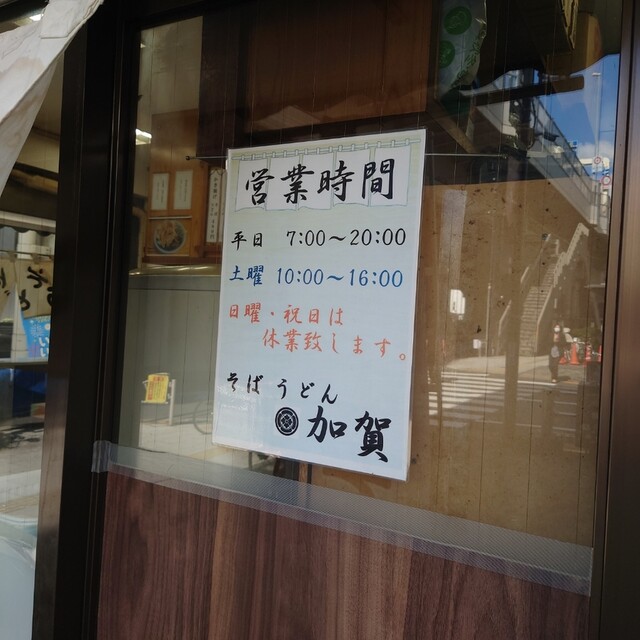 営業時間
平日 7:00～20:00
土曜 10:00～16:00
日曜・祝日は
休業致します。
そば うどん
加賀